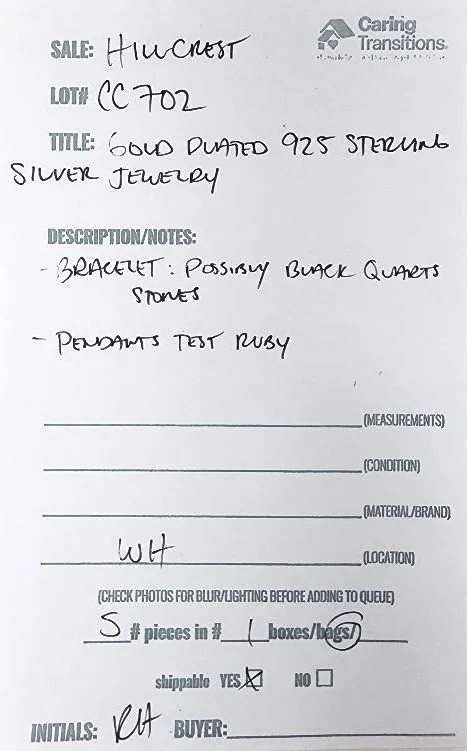 Caring
Transitions
SALE: HILLCREST
LOT# CC702
TITLE: GOLD PLATED 925 STERLING
SILVER JEWELRY
DESCRIPTION/NOTES:
- BRACELET: POSSIBLY BLACK QUARTS
STONES
- PENDANTS TEST RUBY
(MEASUREMENTS)
(CONDITION)
(MATERIAL/BRAND)
WH (LOCATION)
(CHECK PHOTOS FOR BLUR/LIGHTING BEFORE ADDING TO QUEUE)
5 # pieces in # 1 boxes/bags/
shippable YES NO
INITIALS: RH BUYER: